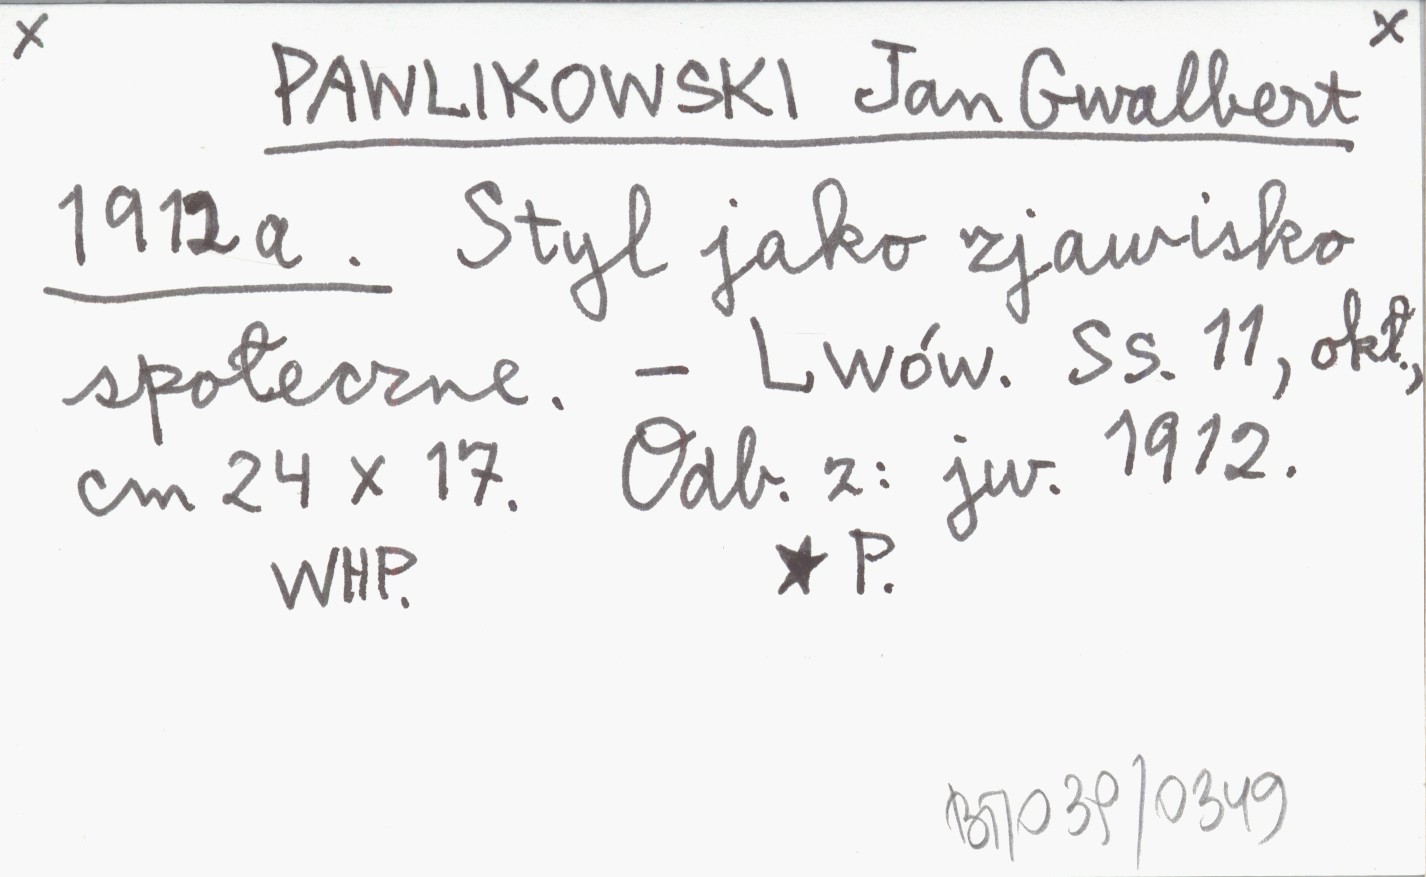 x x
PAWLIKOWSKI Jan Gwalbert
1912a. Styl jako zjawisko
społeczne. – Lwów. Ss. 11, okł.,
cm 24 x 17. Odb. z: jw. 1912.
WHP. ★ P.
/0349